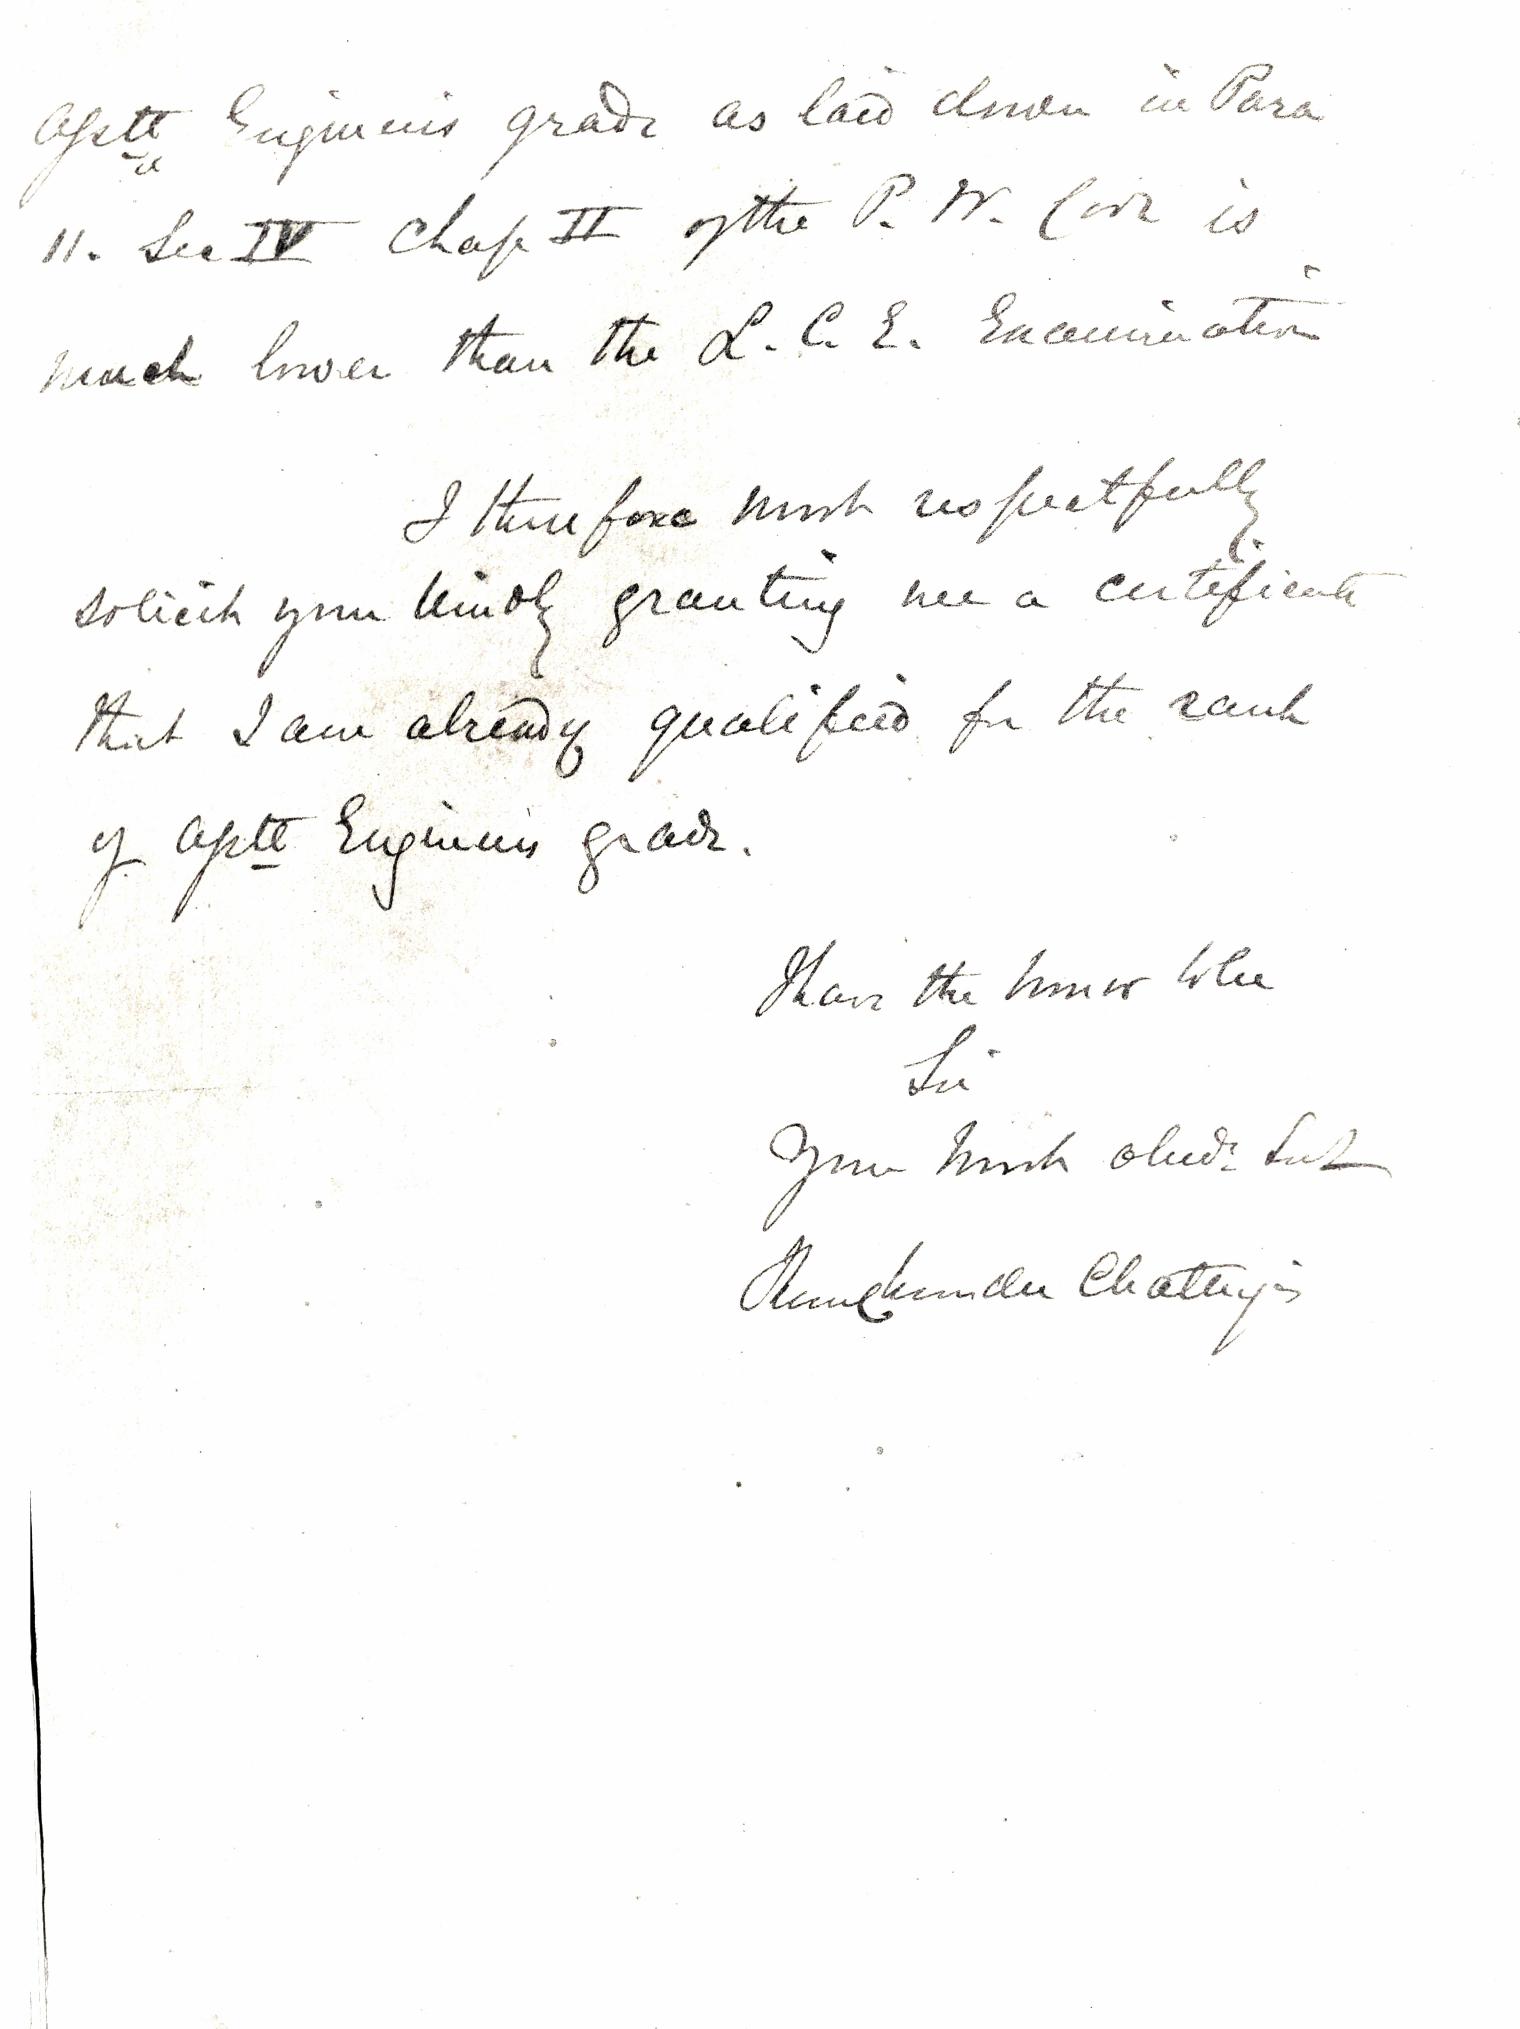 Apptt Engineers grade as laid down in Para
11. Sec IV Chap II of the P. W. Code is
much lower than the L. C. E. Examination
I therefore most respectfully
solicit your kindly granting me a certificate
that I am already qualified for the rank
of Apptt Engineers grade.
I have the honor to be
Sir
Your most obedt Svt
Chatterjis